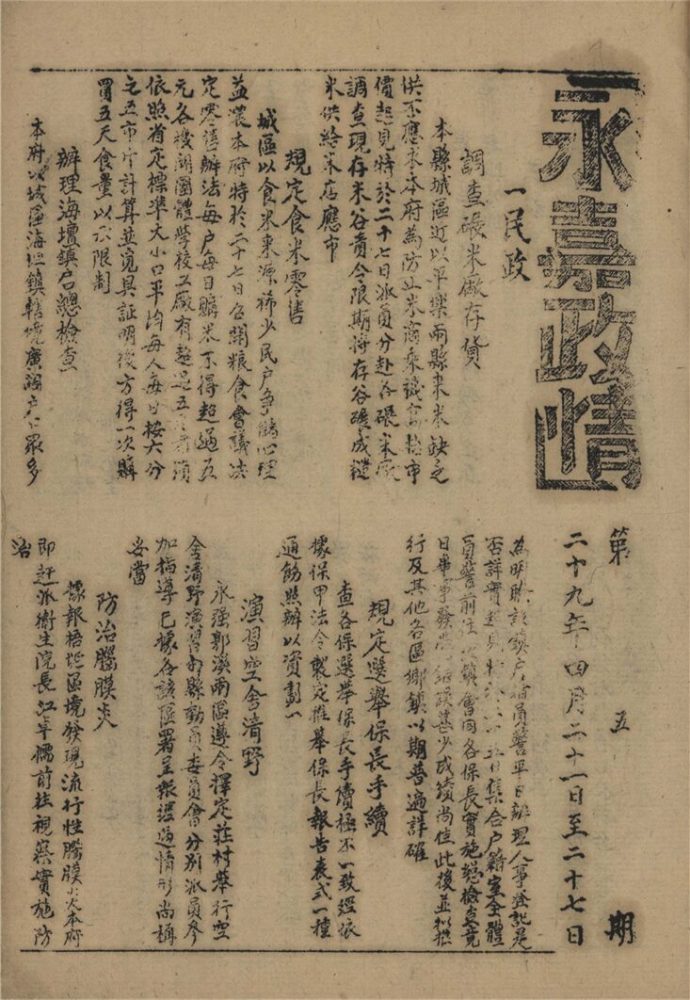 永嘉政情
第五期
二十九年四月二十一日至二十七日
一民政
調查碾米廠存貨
本縣城區近以平樂兩縣來米缺乏
供不應求本府為防止米商乘機高抬市
價起見特於二十七日派員分赴各碾米廠
調查現存米谷責令限期將存谷碾成糙
米供給米店應市
規定食米零售
城區以食米來源稀少民戶爭購心理
益濃本府特於二十七日召開粮食會議决
定零售辦法每户每日購米不得超過五
元各機関團體學校工廠有超過五 者須
依照省定標準大小口平均每人每日按六分
之五市斤計算並寬具証明後方得一次購
買五天食量以示限制
辦理海壇鎮户總檢查
本府以城區海坦鎮轄境廣濶户口眾多
為明瞭該鎮户籍員警平日辦理人事登記是
否詳實起見特於 日集合户籍室全體
員警前往 鎮會同各保長實施總檢查竟
日事 發 錯誤甚少成績尚佳此後並擬推
行及其他各區鄉鎮以期普遍詳確
規定選舉保長手續
查各保選舉保長手續極不一致經依
據保甲法令製定推舉保長報告表式一種
通飭照辦以資劃一
演習空舍清野
永强郭溪兩區遵令擇定莊村舉行空
舍清野演習由縣動員委員會分別派員參
加指導已據各該區署呈報經過情形尚稱
妥當
防治腦膜炎
據報梧埏區境發現流行性腦膜炎本府
即赶派衛生院長江 儒前往視察實施防
治